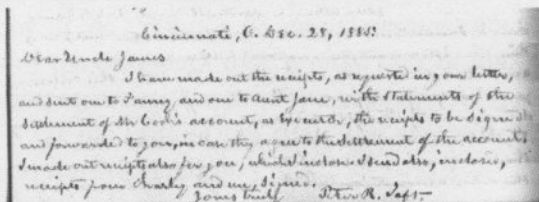 Cincinnati, O. Dec. 28, 1885.
Dear Uncle James
I have made out the reciepts, as requested in your letter,
and sent one to Fanny and one to Aunt Jane, with statements of the
settlement of Mr Cook's account, as Executor, the reciepts to be signed
and forwarded to you, in case they agree to the settlement of the account.
I made out reciepts also for you, which I inclose. I send also, inclosed,
reciepts from Charley and me, signed.
Yours truly Peter R. Taft.